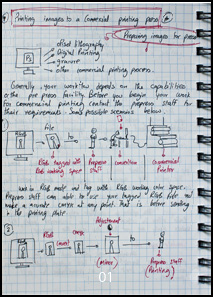 Printing images to a Commercial printing press
Preparing images for press
Ps
offset lithography
Digital Printing
gravure
other commercial printing process.
Generally your workflow depends on the capabilities
of the pre press facility. Before you begin your work
for commercial printing contact the prepress staff for
their requirements. Some possible scenarios below.
①
file
to
RGB tagged with
RGB working space
Prepress
Convertion
Commercial
Printer
work in RGB mode and tag with RGB working color space.
Prepress staff can able to use your tagged RGB file and
make a accurate CMYK at any point. That is before sending
to the printing plate
②
Adjustment
RGB
Convert
CMYK
to
Prepress Staff
(Printing)
01